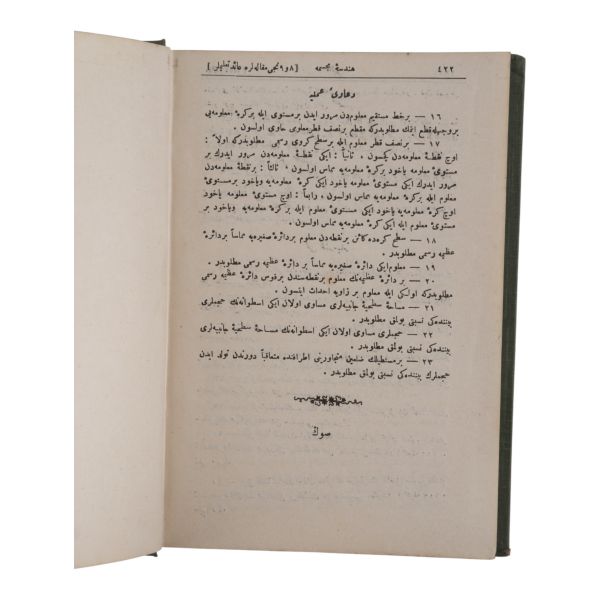 ٤٢٢ هندسهٔ مجسمه [٨ و ٩ نجی مقاله‌لره عائد تعلیلی]
دعاوئ عملیه
١٦ — بر خط مستقیم معلومدن مرور ایدن بر مستوی ایله بر کرهٔ معلومه‌یی
بر وجهله قطع ایتمك مطلوبدرکه مقطع بر نصف قطر معلومی حاوی اولسون .
١٧ — بر نصف قطر معلوم ایله بر سطح کروی رسمی مطلوبدرکه اولا :
اوچ نقطهٔ معلومه‌دن کچسون ، ثانیاً : ایکی نقطهٔ معلومه‌دن مرور ایده‌رك بر
مستوی‌ٔ معلومه یاخود بر کرهٔ معلومه‌یه مماس اولسون ، ثالثاً : بر نقطهٔ معلومه‌دن
مرور ایده‌رك ایکی مستوی‌ٔ معلومه یاخود ایکی کرهٔ معلومه‌یه ویاخود بر مستوی‌ٔ
معلوم ایله بر کرهٔ معلومه‌یه مماس اولسون ، رابعاً : اوچ مستوی‌ٔ معلومه یاخود
اوچ کرهٔ معلومه‌یه یاخود ایکی مستوی‌ٔ معلوم ایله بر کرهٔ معلومه‌یه ویاخود بر
مستوی‌ٔ معلوم ایله ایکی کرهٔ معلومه‌یه مماس اولسون .
١٨ — سطح کره‌ده کائن بر نقطه‌دن معلوم بر دائرهٔ صغیره‌یه مماساً بر دائرهٔ
عظیمه رسمی مطلوبدر .
١٩ — معلوم ایکی دائرهٔ صغیره‌یه مماساً بر دائرهٔ عظیمه رسمی مطلوبدر .
٢٠ — بر دائرهٔ عظیمه‌نك معلوم بر نقطه‌سندن بر قوس دائرهٔ عظیمه رسمی
مطلوبدرکه اولکی ایله معلوم بر زاویه احداث ایتسون .
٢١ — مساحهٔ سطحیهٔ جانبیه‌لری مساوی اولان ایکی اسطوانه‌نك حجملری
بیننده‌کی نسبتی بولمق مطلوبدر .
٢٢ — حجملری مساوی اولان ایکی اسطوانه‌نك مساحهٔ سطحیهٔ جانبیه‌لری
بیننده‌کی نسبتی بولمق مطلوبدر .
٢٣ — بر مستطیلك ضلعین متجاورینی اطرافنده متعاقباً دورندن تولد ایدن
حجملرك بیننده‌کی نسبتی بولمق مطلوبدر .
صوڭ